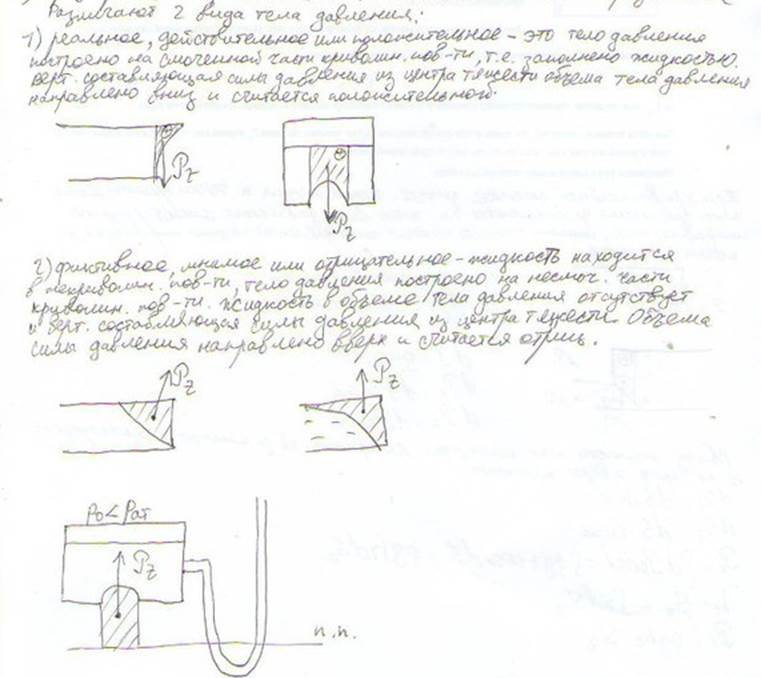 Различают 2 вида тела давления:
1) реальное, действительное или положительное - это тело давления
построено на смоченной части криволин. пов-ти, т.е. заполнено жидкостью.
Верт. составляющая силы давления из центра тяжести объема тела давления
направлено вниз и считается положительной.
Pz
Pz
2) фиктивное, мнимое или отрицательное - жидкость находится
в некриволин. пов-ти, тело давления построено на несмоч. части
криволин. пов-ти. Жидкость в объеме тела давления отсутствует
и верт. составляющая силы давления из центра тяжести объема
силы давления направлено вверх и считается отриц.
Pz
Pz
P0 < Pат
Pz
п.п.